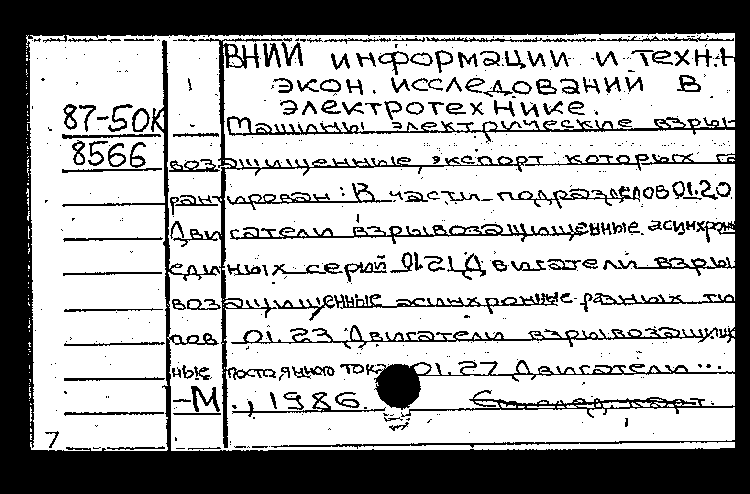 ВНИИ информации и техн.-
экон. исследований в
электротехнике.
87-50К
Машины электрические взрыво-
8566
возащищенные, экспорт которых га
рантирован: В части подразделов 01.20
Двигатели взрывозащищенные асинхрон
единых серий 01.21 Двигатели взры
возащищенные асинхронные разных ти
пов 01.23 Двигатели взрывозащищен
ные постоянного тока 01.27 Двигатели...
-М., 1986.
7